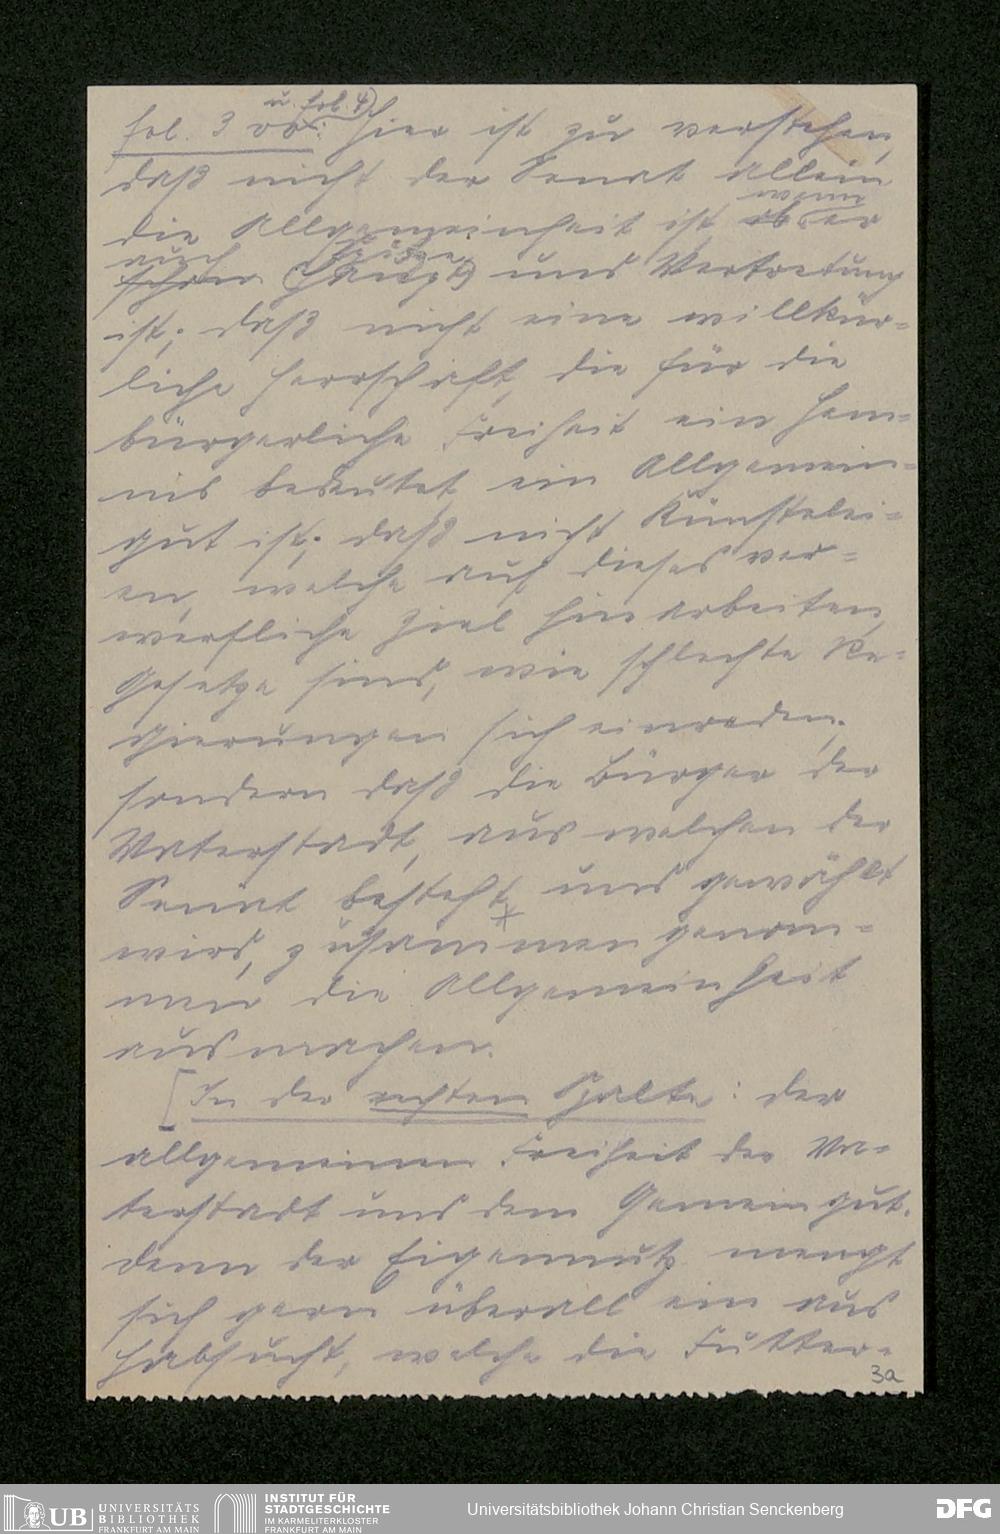 u. fol. 4)
fol. 3 vo: hier ist zu verstehen,
daß nicht der Senat allein
wenn
die Allgemeinheit ist, ob er
auch Spitze
schon (Haupt) und Vertretung
ist; daß nicht eine willkür-
liche Herrschaft, die für die
bürgerliche Freiheit ein Hem-
nis bedeutet ein Allgemein-
gut ist; daß nicht Künstelei-
en, welche auf dieses ver-
werfliche Ziel hinarbeiten,
Gesetze sind, wie schlechte Re-
gierungen sich einreden;
sondern daß die Bürger der
Vaterstadt, aus welchen der
Senat besteht und gewählt
wird, zusammen genom-
men die Allgemeinheit
ausmachen.
[In der rechten Spalte: der
allgemeinen Freiheit der Va-
terstadt und dem Gemeingut.
denn der Eigennutz mengt
sich gern überall ein aus
Habsucht, welche die Futter-
3a
UB UNIVERSITÄTS
BIBLIOTHEK
FRANKFURT AM MAIN
INSTITUT FÜR
STADTGESCHICHTE
IM KARMELITERKLOSTER
FRANKFURT AM MAIN
Universitätsbibliothek Johann Christian Senckenberg
DFG